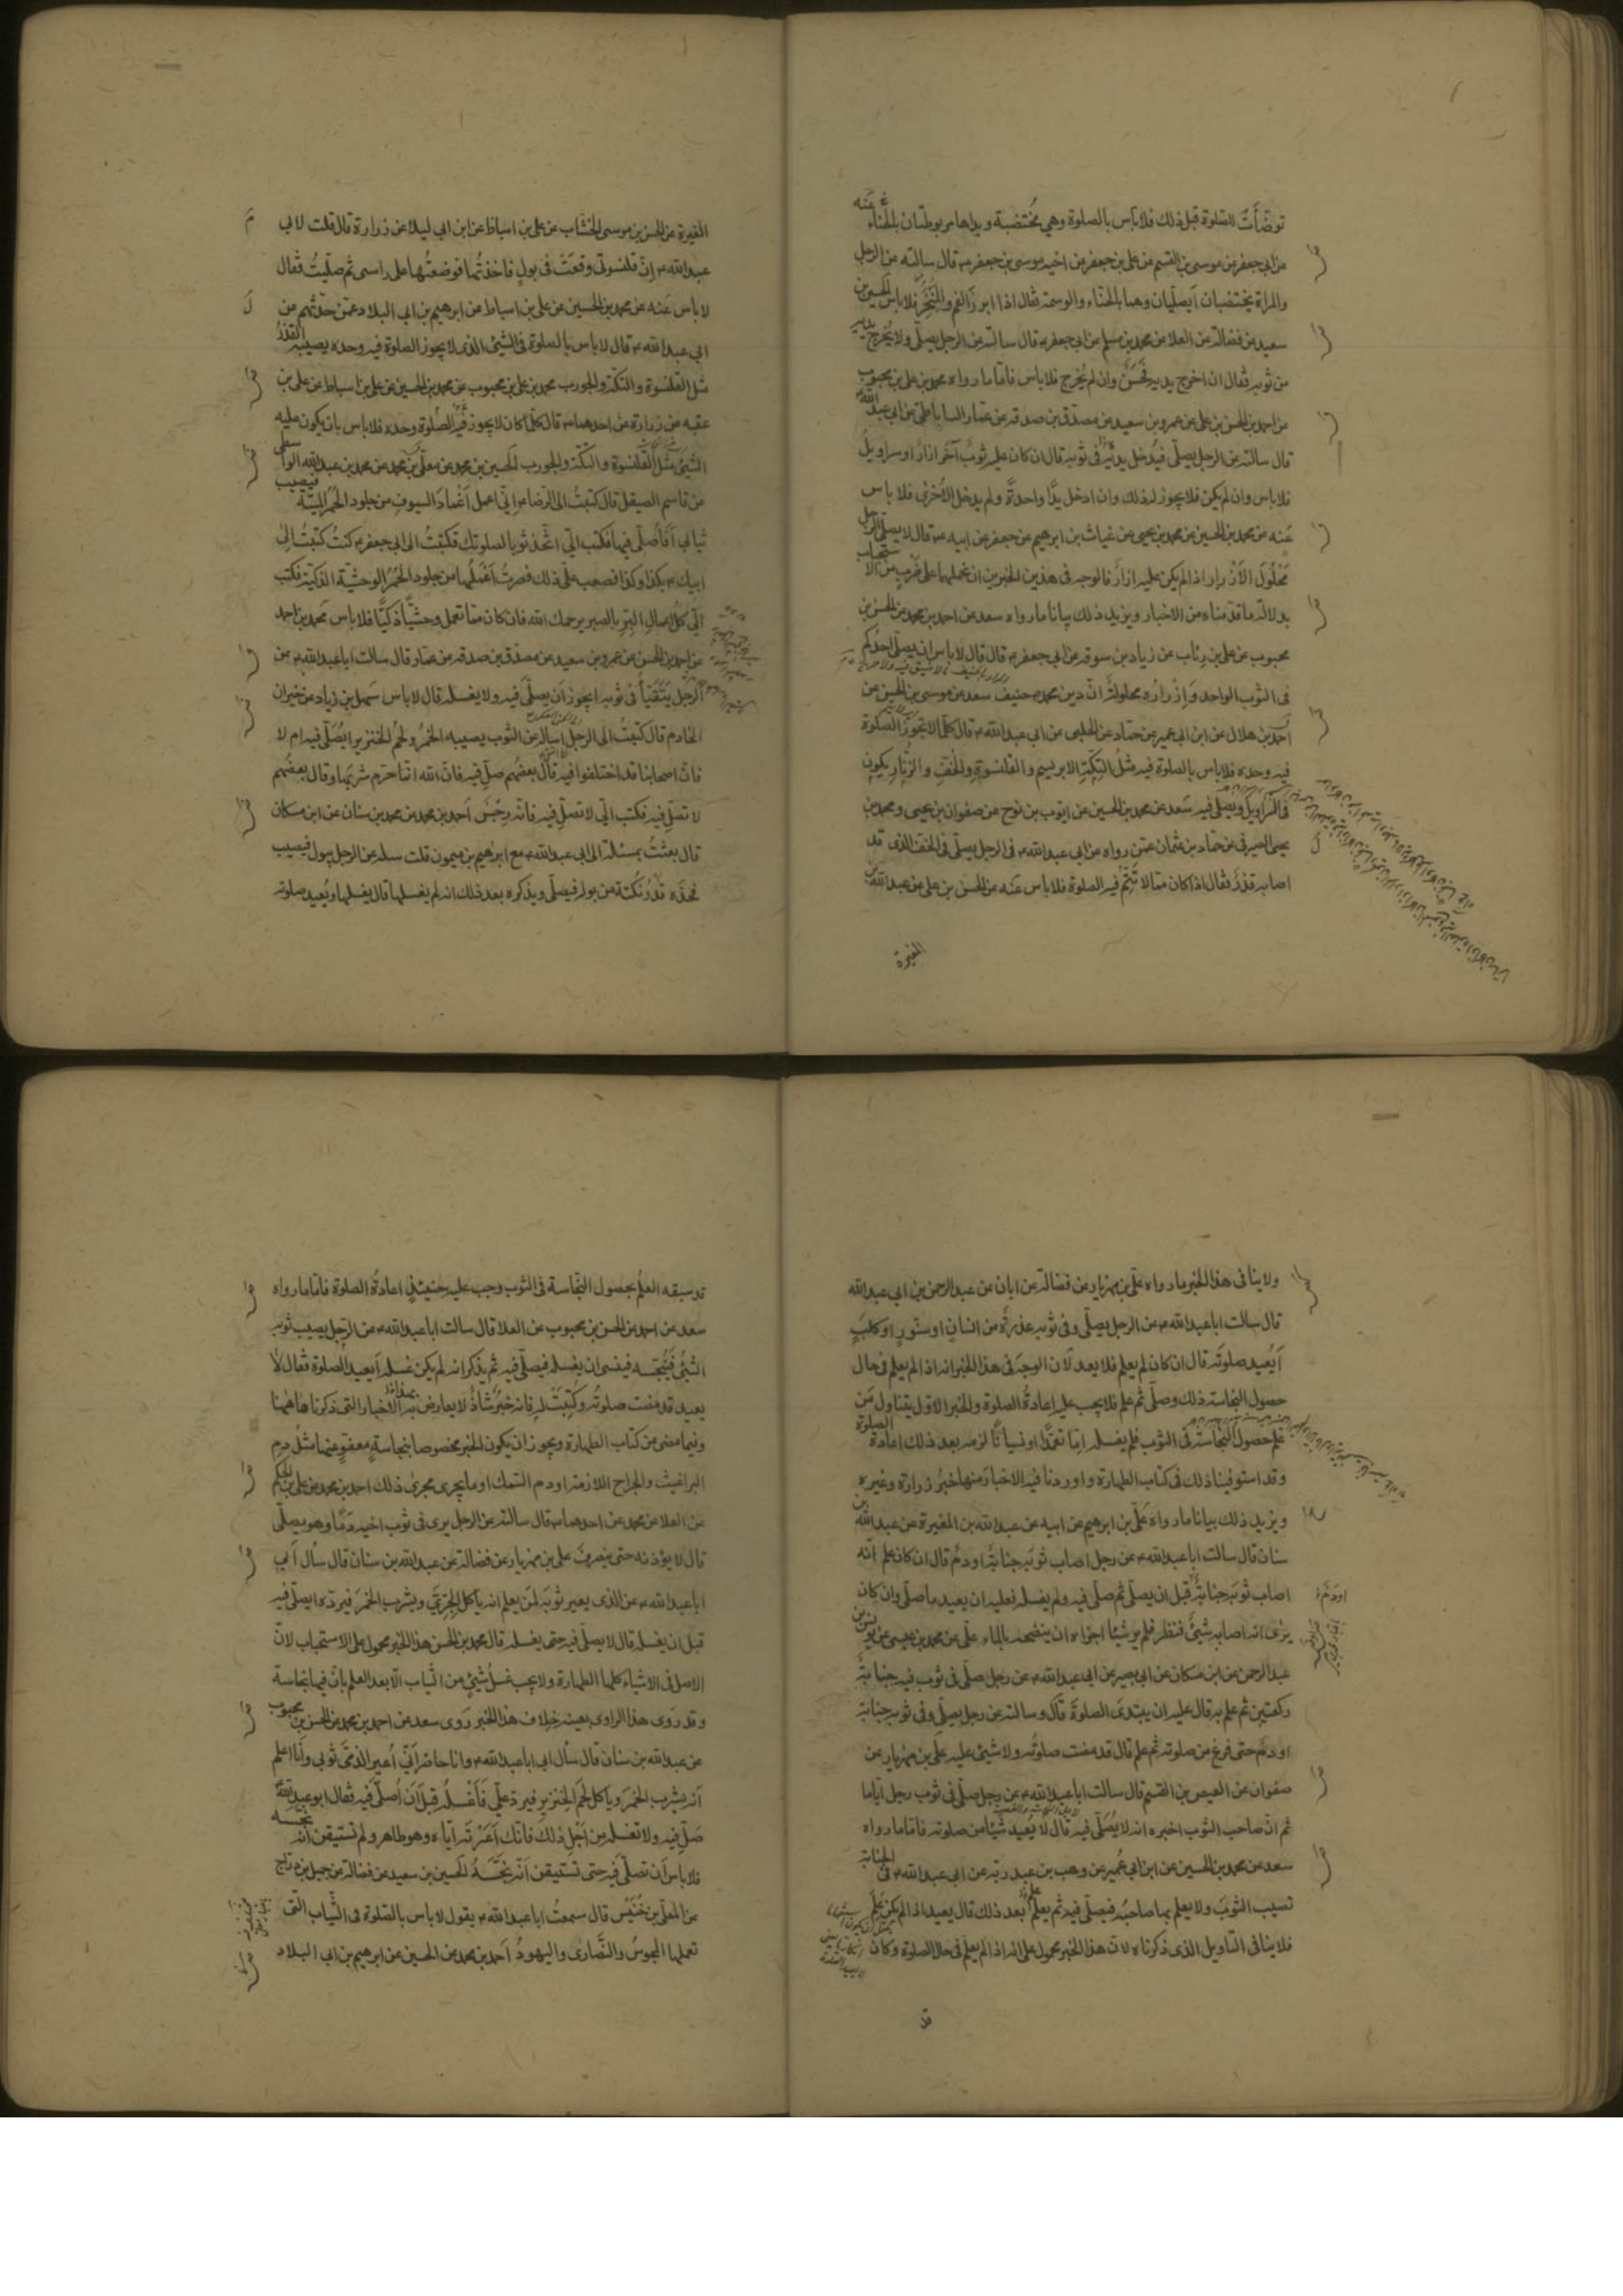 توضّأت للصلوة قبل ذلك فلا باس بالصلوة وهي مختضبة ويداها مربوطتان بالحنّاء عنه
عن ابي جعفر عن موسى بن القسم عن علي بن جعفر عن اخيه موسى بن جعفر ع قال سالته عن الرجل
والمراة يختضبان أيصليان وهما بالحناء والوسمة فقال اذا ابرزا الفم والمنخر فلا باس الحسين بن
سعيد عن فضالة عن العلا عن محمد بن مسلم عن ابي جعفر ع قال سالته عن الرجل يصلي ولا يخرج يديه
من ثوبه فقال ان اخرج يديه فحسن وان لم يخرج فلا باس فاما ما رواه محمد بن علي بن محبوب
عن احمد بن الحسن بن علي عن عمرو بن سعيد عن مصدق بن صدقة عن عمار الساباطي عن ابي عبد الله ع
قال سالته عن الرجل يصلي فيدخل يديه في ثوبه قال ان كان عليه ثوب آخر ازار او سراويل
فلا باس وان لم يكن فلا يجوز له ذلك وان ادخل يدا واحدة ولم يدخل الاخرى فلا باس
عنه عن محمد بن الحسين عن محمد بن يحيى عن غياث بن ابرهيم عن جعفر عن ابيه ع قال لا يصلي الرجل
محلول الازرار اذا لم يكن عليه ازار فالوجه في هذين الخبرين ان نحملهما على ضرب من الاستحباب
بدلالة ما قدمناه من الاخبار ويزيد ذلك بيانا ما رواه سعد عن احمد بن محمد عن الحسن بن
محبوب عن علي بن رئاب عن زياد بن سوقة عن ابي جعفر ع قال قال لا باس ان يصلي احدكم
في الثوب الواحد وازراره محلولة انّ دين محمد ص حنيف سعد عن موسى بن الحسن عن
احمد بن هلال عن ابن ابي عمير عن حماد عن الحلبي عن ابي عبد الله ع قال كلما لا تجوز الصلوة
فيه وحده فلا باس بالصلوة فيه مثل التكة الابريسم والقلنسوة والخف والزنار يكون
في السراويل ويصلى فيه سعد عن محمد بن الحسين عن ايوب بن نوح عن صفوان بن يحيى ومحمد بن
يحيى الصيرفي عن حماد بن عثمان عمن رواه عن ابي عبد الله ع في الرجل يصلي في الخف الذي قد
اصابه قذر فقال اذا كان مما لا تتم فيه الصلوة فلا باس عنه عن الحسن بن علي عن عبد الله بن
المغيرة
المغيرة عن الحسن بن موسى الخشاب عن علي بن اسباط عن ابن ابي ليلا عن زرارة قال قلت لابي
عبد الله ع انّ قلنسوتي وقعت في بول فاخذتها فوضعتها على راسي ثم صليت فقال
لا باس عنه عن محمد بن الحسين عن علي بن اسباط عن ابرهيم بن ابي البلاد عمن حدثهم عن
ابي عبد الله ع قال لا باس بالصلوة في الشيئ الذي لا يجوز الصلوة فيه وحده يصيبه القذر
مثل القلنسوة والتكة والجورب محمد بن علي بن محبوب عن محمد بن الحسين عن علي بن اسباط عن علي بن
عقبه عن زرارة عن احدهما ع قال كلما كان لا يجوز فيه الصلوة وحده فلا باس بان يكون عليه
الشيئ مثل القلنسوة والتكة والجورب الحسين بن محمد عن معلى بن محمد عن محمد بن عبد الله الواسطي
عن قاسم الصيقل قال كتبت الى الرضا ع اني اعمل اغماد السيوف من جلود الحمر الميتة فيصيب
ثيابي أفأصلي فيها فكتب الي اتخذ ثوبا لصلوتك فكتبت الى ابي جعفر ع كنت كتبت الى
ابيك ع بكذا وكذا فصعب علي ذلك فصرت اعملها من جلود الحمر الوحشية الذكية فكتب
الي كل اعمال البر بالصبر يرحمك الله فان كان ما تعمل وحشيا ذكيا فلا باس محمد بن احمد
عن احمد بن الحسن عن عمرو بن سعيد عن مصدق بن صدقة عن عمار قال سالت ابا عبد الله ع عن
الرجل يتقيأ في ثوبه ايجوز ان يصلي فيه ولا يغسله قال لا باس سهل بن زياد عن خيران
الخادم قال كتبت الى الرجل اساله عن الثوب يصيبه الخمر ولحم الخنزير ايصلى فيه ام لا
فان اصحابنا قد اختلفوا فيه قال بعضهم صل فيه فان الله انما حرم شربها وقال بعضهم
لا تصل فيه فكتب الي لا تصل فيه فانه رجس احمد بن محمد عن محمد بن سنان عن ابن مسكان
قال بعثت بمسئلة الى ابي عبد الله ع مع ابرهيم بن ميمون قلت سله عن الرجل يبول فيصيب
فخذه قدر نكتة من بوله فيصلي ويذكره بعد ذلك انه لم يغسلها قال يغسلها ويعيد صلوته
ولا ينافي هذا الخبر ما رواه علي بن مهزيار عن فضالة عن ابان عن عبد الرحمن بن ابي عبد الله
قال سالت ابا عبد الله ع عن الرجل يصلي وفي ثوبه عذرة من انسان او سنور او كلب
أيعيد صلوته قال ان كان لم يعلم فلا يعد لان الوجه في هذا الخبر انه اذا لم يعلم في حال
حصول النجاسة ذلك وصلى ثم علم فلا يجب عليه اعادة الصلوة والخبر الاول يتناول من
علم حصول النجاسة في الثوب فلم يغسله اما تعمدا او نسيانا لزمه بعد ذلك اعادة الصلوة
وقد استوفينا ذلك في كتاب الطهارة واوردنا فيه الاخبار منها خبر زرارة وغيره
ويزيد ذلك بيانا ما رواه علي بن ابرهيم عن ابيه عن عبد الله بن المغيرة عن عبد الله بن
سنان قال سالت ابا عبد الله ع عن رجل اصاب ثوبه جنابة او دم قال ان كان علم انه
اصاب ثوبه جنابة قبل ان يصلي ثم صلى فيه ولم يغسله فعليه ان يعيد ما صلى وان كان
او دم
يرى انه اصابه شيئ فنظر فلم ير شيئا اجزاه ان ينضحه بالماء علي عن محمد بن عيسى عن يونس بن
عبد الرحمن عن ابن مسكان عن ابي بصير عن ابي عبد الله ع عن رجل صلى في ثوب فيه جنابة
ركعتين ثم علم به قال عليه ان يبتدئ الصلوة قال وسالته عن رجل يصلي وفي ثوبه جنابة
او دم حتى فرغ من صلوته ثم علم قال قد مضت صلوته ولا شيئ عليه علي بن مهزيار عن
صفوان عن العيص بن القسم قال سالت ابا عبد الله ع عن رجل صلى في ثوب رجل اياما
ثم ان صاحب الثوب اخبره انه لا يصلي فيه قال لا يعيد شيئا من صلوته فاما ما رواه
سعد عن محمد بن الحسين عن ابن ابي عمير عن وهب بن عبد ربه عن ابي عبد الله ع في الجنابة
تصيب الثوب ولا يعلم بها صاحبه فيصلي فيه ثم يعلم بعد ذلك قال يعيد اذا لم يكن علم
فلا ينافي التاويل الذي ذكرناه لان هذا الخبر محمول على انه اذا لم يعلم في حال الصلوة وكان
قد
قد سبقه العلم بحصول النجاسة في الثوب وجب عليه حينئذ اعادة الصلوة فاما ما رواه
سعد عن احمد عن الحسن بن محبوب عن العلا قال سالت ابا عبد الله ع عن الرجل يصيب ثوبه
الشيئ فينجسه فينسى ان يغسله فيصلي فيه ثم يذكر انه لم يكن غسله أيعيد الصلوة فقال لا
يعيد قد مضت صلوته وكتبت له فانه خبر شاذ لا يعارض به الاخبار التي ذكرناها هاهنا
وفيما مضى من كتاب الطهارة ويجوز ان يكون الخبر مخصوصا بنجاسة معفو عنها مثل دم
البراغيث والجراح اللازمة او دم السمك او ما يجري مجرى ذلك احمد بن محمد عن علي بن الحكم
عن العلا عن محمد عن احدهما ع قال سالته عن الرجل يرى في ثوب اخيه دما وهو يصلي
قال لا يؤذنه حتى ينصرف علي بن مهزيار عن فضالة عن عبد الله بن سنان قال سأل ابي
ابا عبد الله ع عن الذي يعير ثوبه لمن يعلم انه ياكل الجري ويشرب الخمر فيرده ايصلي فيه
قبل ان يغسله قال لا يصلي فيه حتى يغسله قال محمد بن الحسن هذا الخبر محمول على الاستحباب لان
الاصل في الاشياء كلها الطهارة ولا يجب غسل شيئ من الثياب الا بعد العلم بان فيها نجاسة
وقد روى هذا الراوي بعينه خلاف هذا الخبر روى سعد عن احمد بن محمد عن الحسن بن محبوب
عن عبد الله بن سنان قال سأل ابي ابا عبد الله ع وانا حاضر اني اعير الذمي ثوبي وانا اعلم
انه يشرب الخمر وياكل لحم الخنزير فيرد علي فاغسله قبل ان اصلي فيه فقال ابو عبد الله
صل فيه ولا تغسله من اجل ذلك فانك اعرته اياه وهو طاهر ولم تستيقن انه نجسه
فلا باس ان تصلي فيه حتى تستيقن انه نجسه الحسين بن سعيد عن فضالة عن جميل بن دراج
عن المعلى بن خنيس قال سمعت ابا عبد الله ع يقول لا باس بالصلوة في الثياب التي
تعملها المجوس والنصارى واليهود احمد بن محمد عن الحسين عن ابرهيم بن ابي البلاد